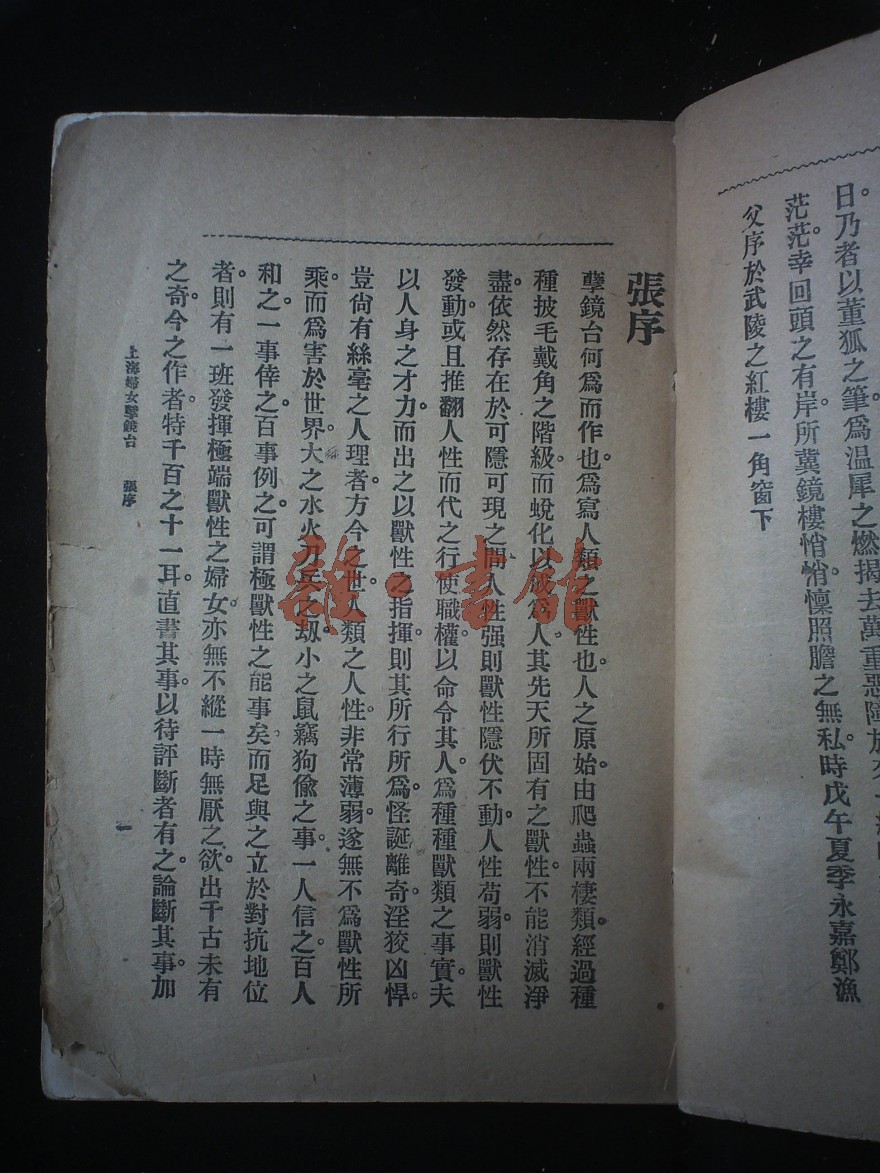 日。乃者以董狐之筆。爲温犀之燃。揭去萬重惡障。於
茫茫。幸回頭之有岸。所冀鏡樓悄悄。懍照膽之無私。時戊午夏季永嘉鄭漁
父序於武陵之紅樓一角窗下
張序
孽鏡台何爲而作也。爲寫人類之獸性也。人之原始。由爬蟲兩棲類。經過種
種披毛戴角之階級。而蛻化以成爲人。其先天所固有之獸性。不能消滅淨
盡。依然存在於可隱可現之間。人性强則獸性隱伏不動。人性苟弱。則獸性
發動。或且推翻人性而代之行使職權。以命令其人。爲種種獸類之事實。夫
以人身之才力。而出之以獸性之指揮。則其所行所爲。怪誕離奇。淫狡凶悍。
豈尙有絲毫之人理者。方今之世。人類之人性。非常薄弱。遂無不爲獸性所
乘。而爲害於世界。大之水火刀兵之刼。小之鼠竊狗偸之事。一人信之。百人
和之。一事倖之。百事例之。可謂極獸性之能事矣。而足與之立於對抗地位
者。則有一班發揮極端獸性之婦女。亦無不縱一時無厭之欲。出千古未有
之奇。今之作者。特千百之十一耳。直書其事。以待評斷者有之。論斷其事。加
上海婦女孽鏡台　張序
一
雜·書館